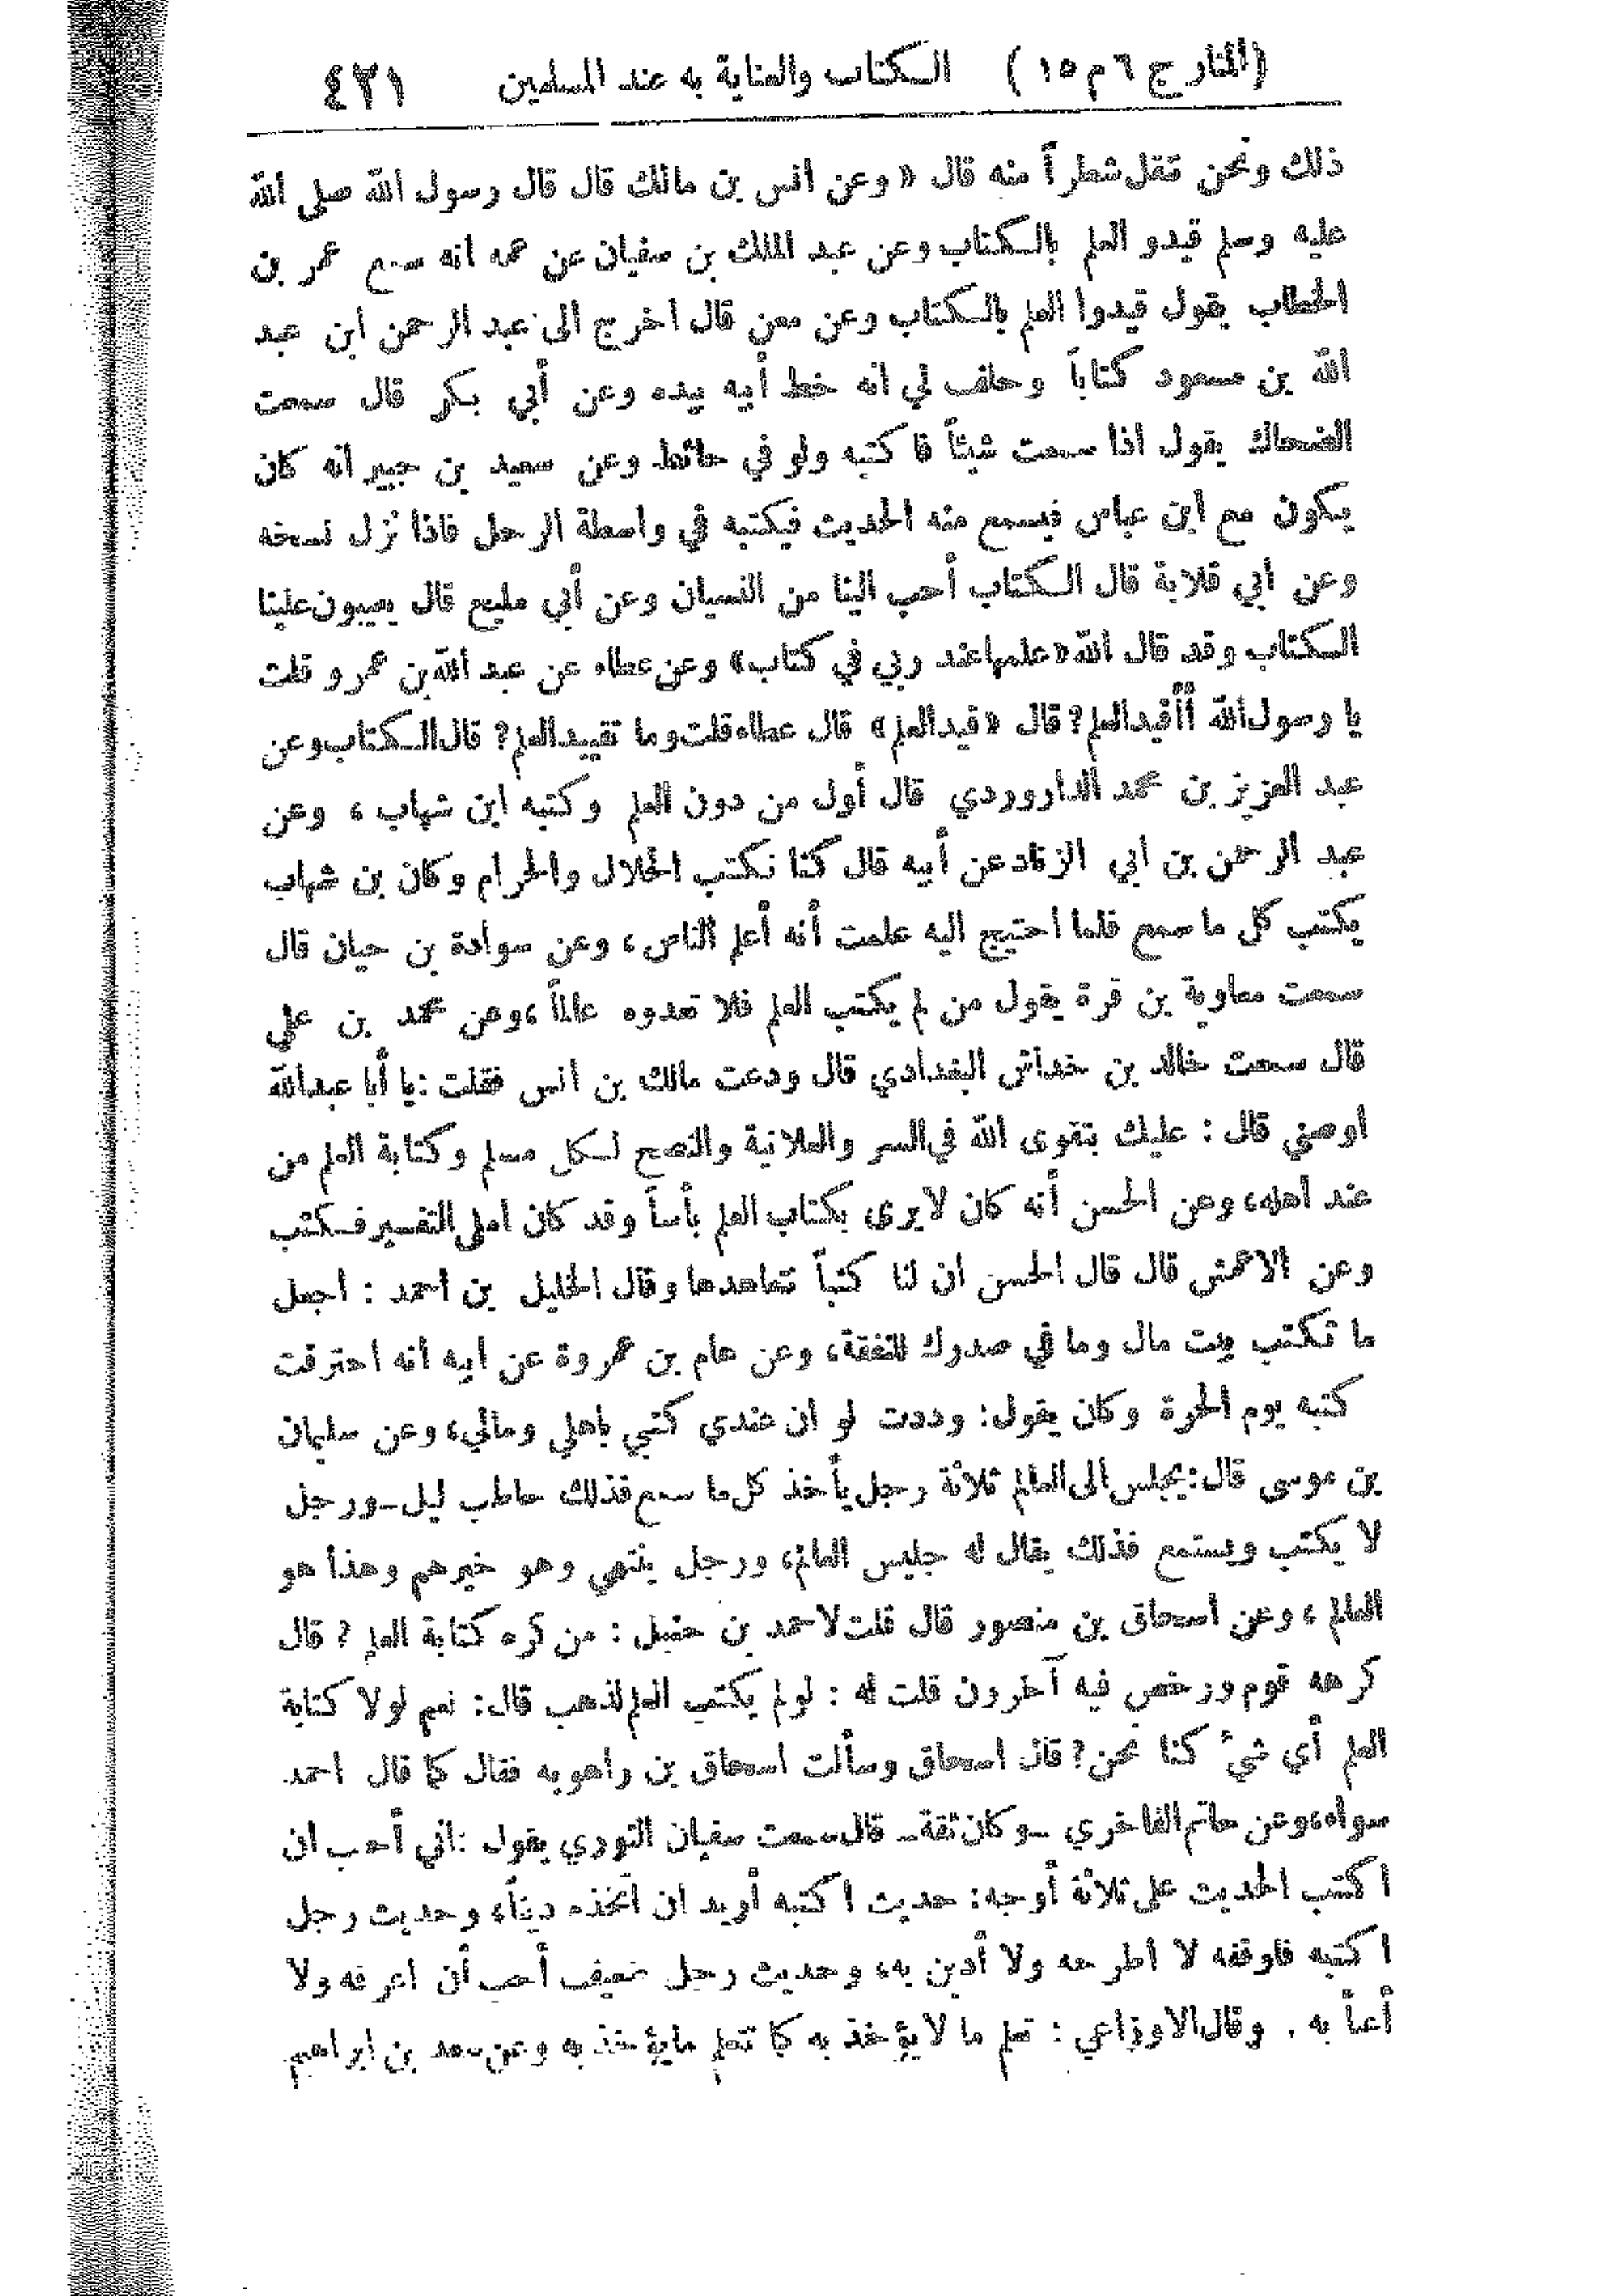 (المنارج ٦ م ١٥) الكتاب والعناية به عند المسلمين ٤٢١
ذلك ونحن ننقل شطراً منه قال « وعن انس بن مالك قال قال رسول الله صلى الله
عليه وسلم قيدو العلم بالكتاب وعن عبد الملك بن سفيان عن عمه انه سمع عمر بن
الخطاب يقول قيدوا العلم بالكتاب وعن معن قال اخرج الى عبد الرحمن ابن عبد
الله بن مسعود كتاباً وحلف لي انه خط أبيه بيده وعن أبي بكر قال سمعت
الضحاك يقول اذا سمعت شيئاً فاكتبه ولو في حائط وعن سعيد بن جبير انه كان
يكون مع ابن عباس فيسمع منه الحديث فيكتبه في واسطة الرحل فاذا نزل نسخه
وعن ابي قلابة قال الكتاب أحب الينا من النسيان وعن أبي مليح قال يعيبون علينا
الكتاب وقد قال الله «علمها عند ربي في كتاب» وعن عطاء عن عبد الله بن عمرو قلت
يا رسول الله أأقيد العلم؟ قال «قيد العلم» قال عطاء قلت وما تقييد العلم؟ قال الكتاب وعن
عبد العزيز بن محمد الداروردي قال أول من دون العلم وكتبه ابن شهاب ، وعن
عبد الرحمن بن ابي الزناد عن أبيه قال كنا نكتب الحلال والحرام وكان بن شهاب
يكتب كل ما سمع فلما احتيج اليه علمت أنه أعلم الناس ، وعن سوادة بن حيان قال
سمعت معاوية بن قرة يقول من لم يكتب العلم فلا تعدوه عالماً ، وعن محمد بن علي
قال سمعت خالد بن خداش البغدادي قال ودعت مالك بن انس فقلت : يا أبا عبد الله
اوصني قال : عليك بتقوى الله في السر والعلانية والنصح لكل مسلم وكتابة العلم من
عند اهله، وعن الحسن أنه كان لا يرى بكتاب العلم بأساً وقد كان املى التفسير فكتب
وعن الاعمش قال قال الحسن ان لنا كتباً نتعاهدها وقال الخليل بن أحمد : اجعل
ما تكتب بيت مال وما في صدرك للنفقة، وعن هام بن عمروة عن ابيه انه احترقت
كتبه يوم الحرة وكان يقول: وددت لو ان عندي كتبي باهلي ومالي، وعن سليمان
بن موسى قال: يجلس الى العالم ثلاثة رجل يأخذ كل ما سمع فذلك حاطب ليل ــ ورجل
لا يكتب ويستمع فذلك يقال له جليس العالم، ورجل ينتقي وهو خيرهم وهذا هو
العالم ، وعن اسحاق بن منصور قال قلت لاحمد بن حنبل : من كره كتابة العلم ؟ قال
كرهه قوم ورخص فيه آخرون قلت له : لو لم يكتب العلم لذهب قال: نعم لولا كتابة
العلم أي شيء كنا نحن؟ قال اسحاق وسألت اسحاق بن راهويه فقال كما قال احمد
سواء، وعن حاتم الفاخري ــ وكان ثقة ــ قال سمعت سفيان الثوري يقول : اني أحب ان
اكتب الحديث على ثلاثة أوجه: حديث اكتبه أريد ان اتخذه ديناً، وحديث رجل
اكتبه فاوقفه لا اطرحه ولا أدين به، وحديث رجل ضعيف أحب أن اعرفه ولا
أعبأ به . وقال الاوزاعي : تعلم ما لا يؤخذ به كما تتعلم ما يؤخذ به وعن سعد بن ابراهيم